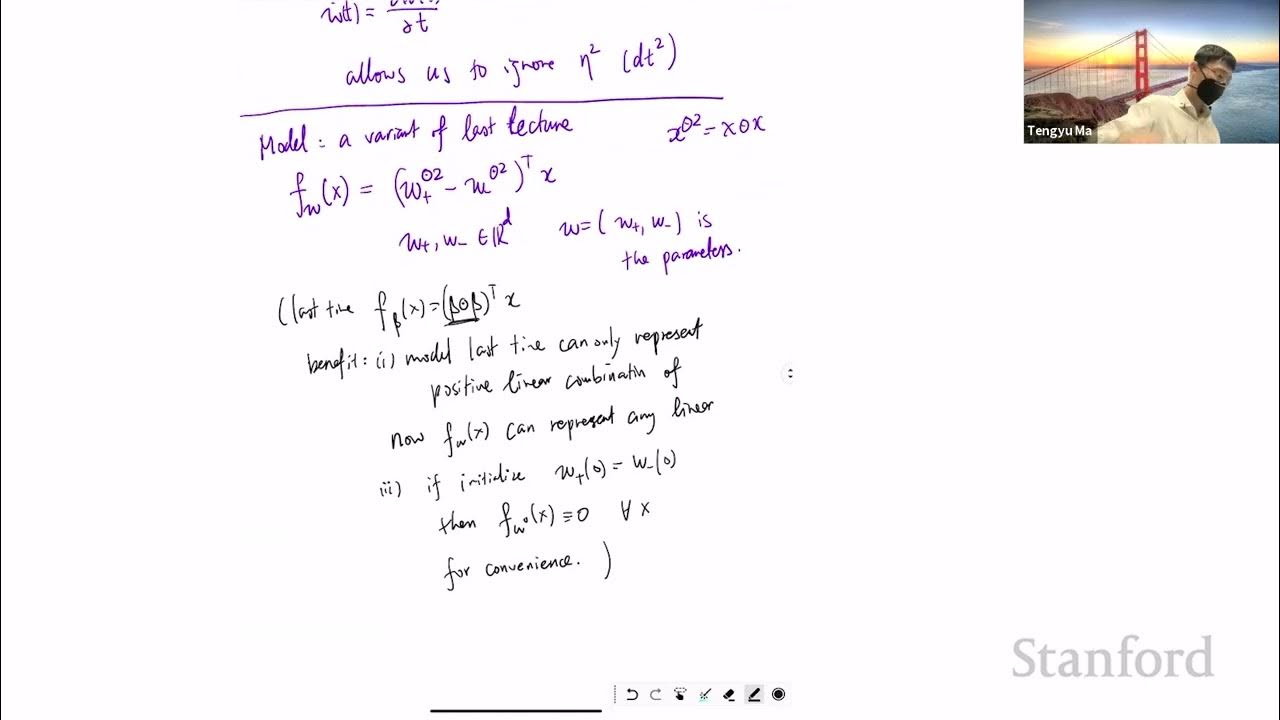 ẇ(t) = ∂w(t)/∂t
allows us to ignore η² (dt²)
Model: a variant of last lecture x^⊙2 = x⊙x
f_w(x) = (w₊^⊙2 - w₋^⊙2)^T x
w₊, w₋ ∈ ℝ^d w = (w₊, w₋) is
the parameters.
(last time f_β(x) = (β⊙β)^T x
benefit: (i) model last time can only represent
positive linear combinatin of
now f_w(x) can represent any linear
ii) if initialize w₊(0) = w₋(0)
then f_w⁰(x) ≡ 0 ∀ x
for convenience. )
Tengyu Ma
Stanford